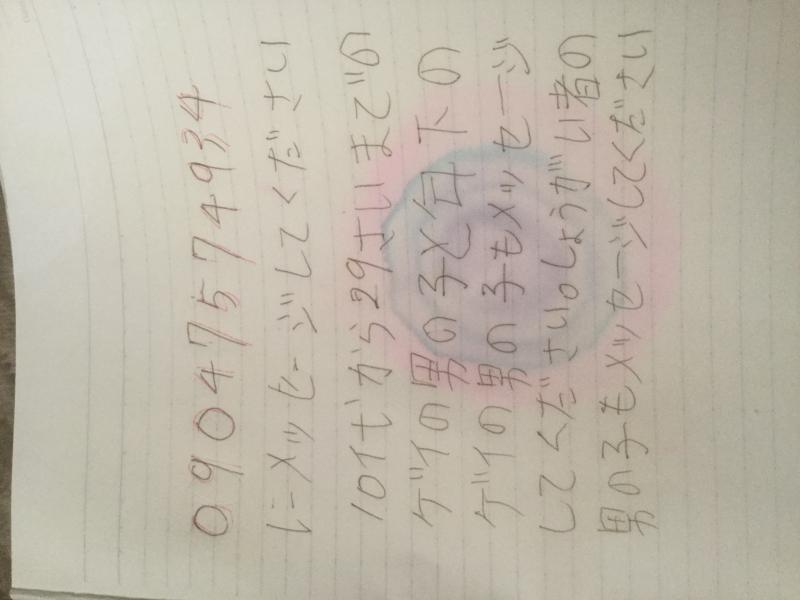 09047574934
にメッセージしてください
10代から29さいまでの
ゲイの男の子と年下の
ゲイの男の子もメッセージ
してください。しょうがい者の
男の子もメッセージしてください